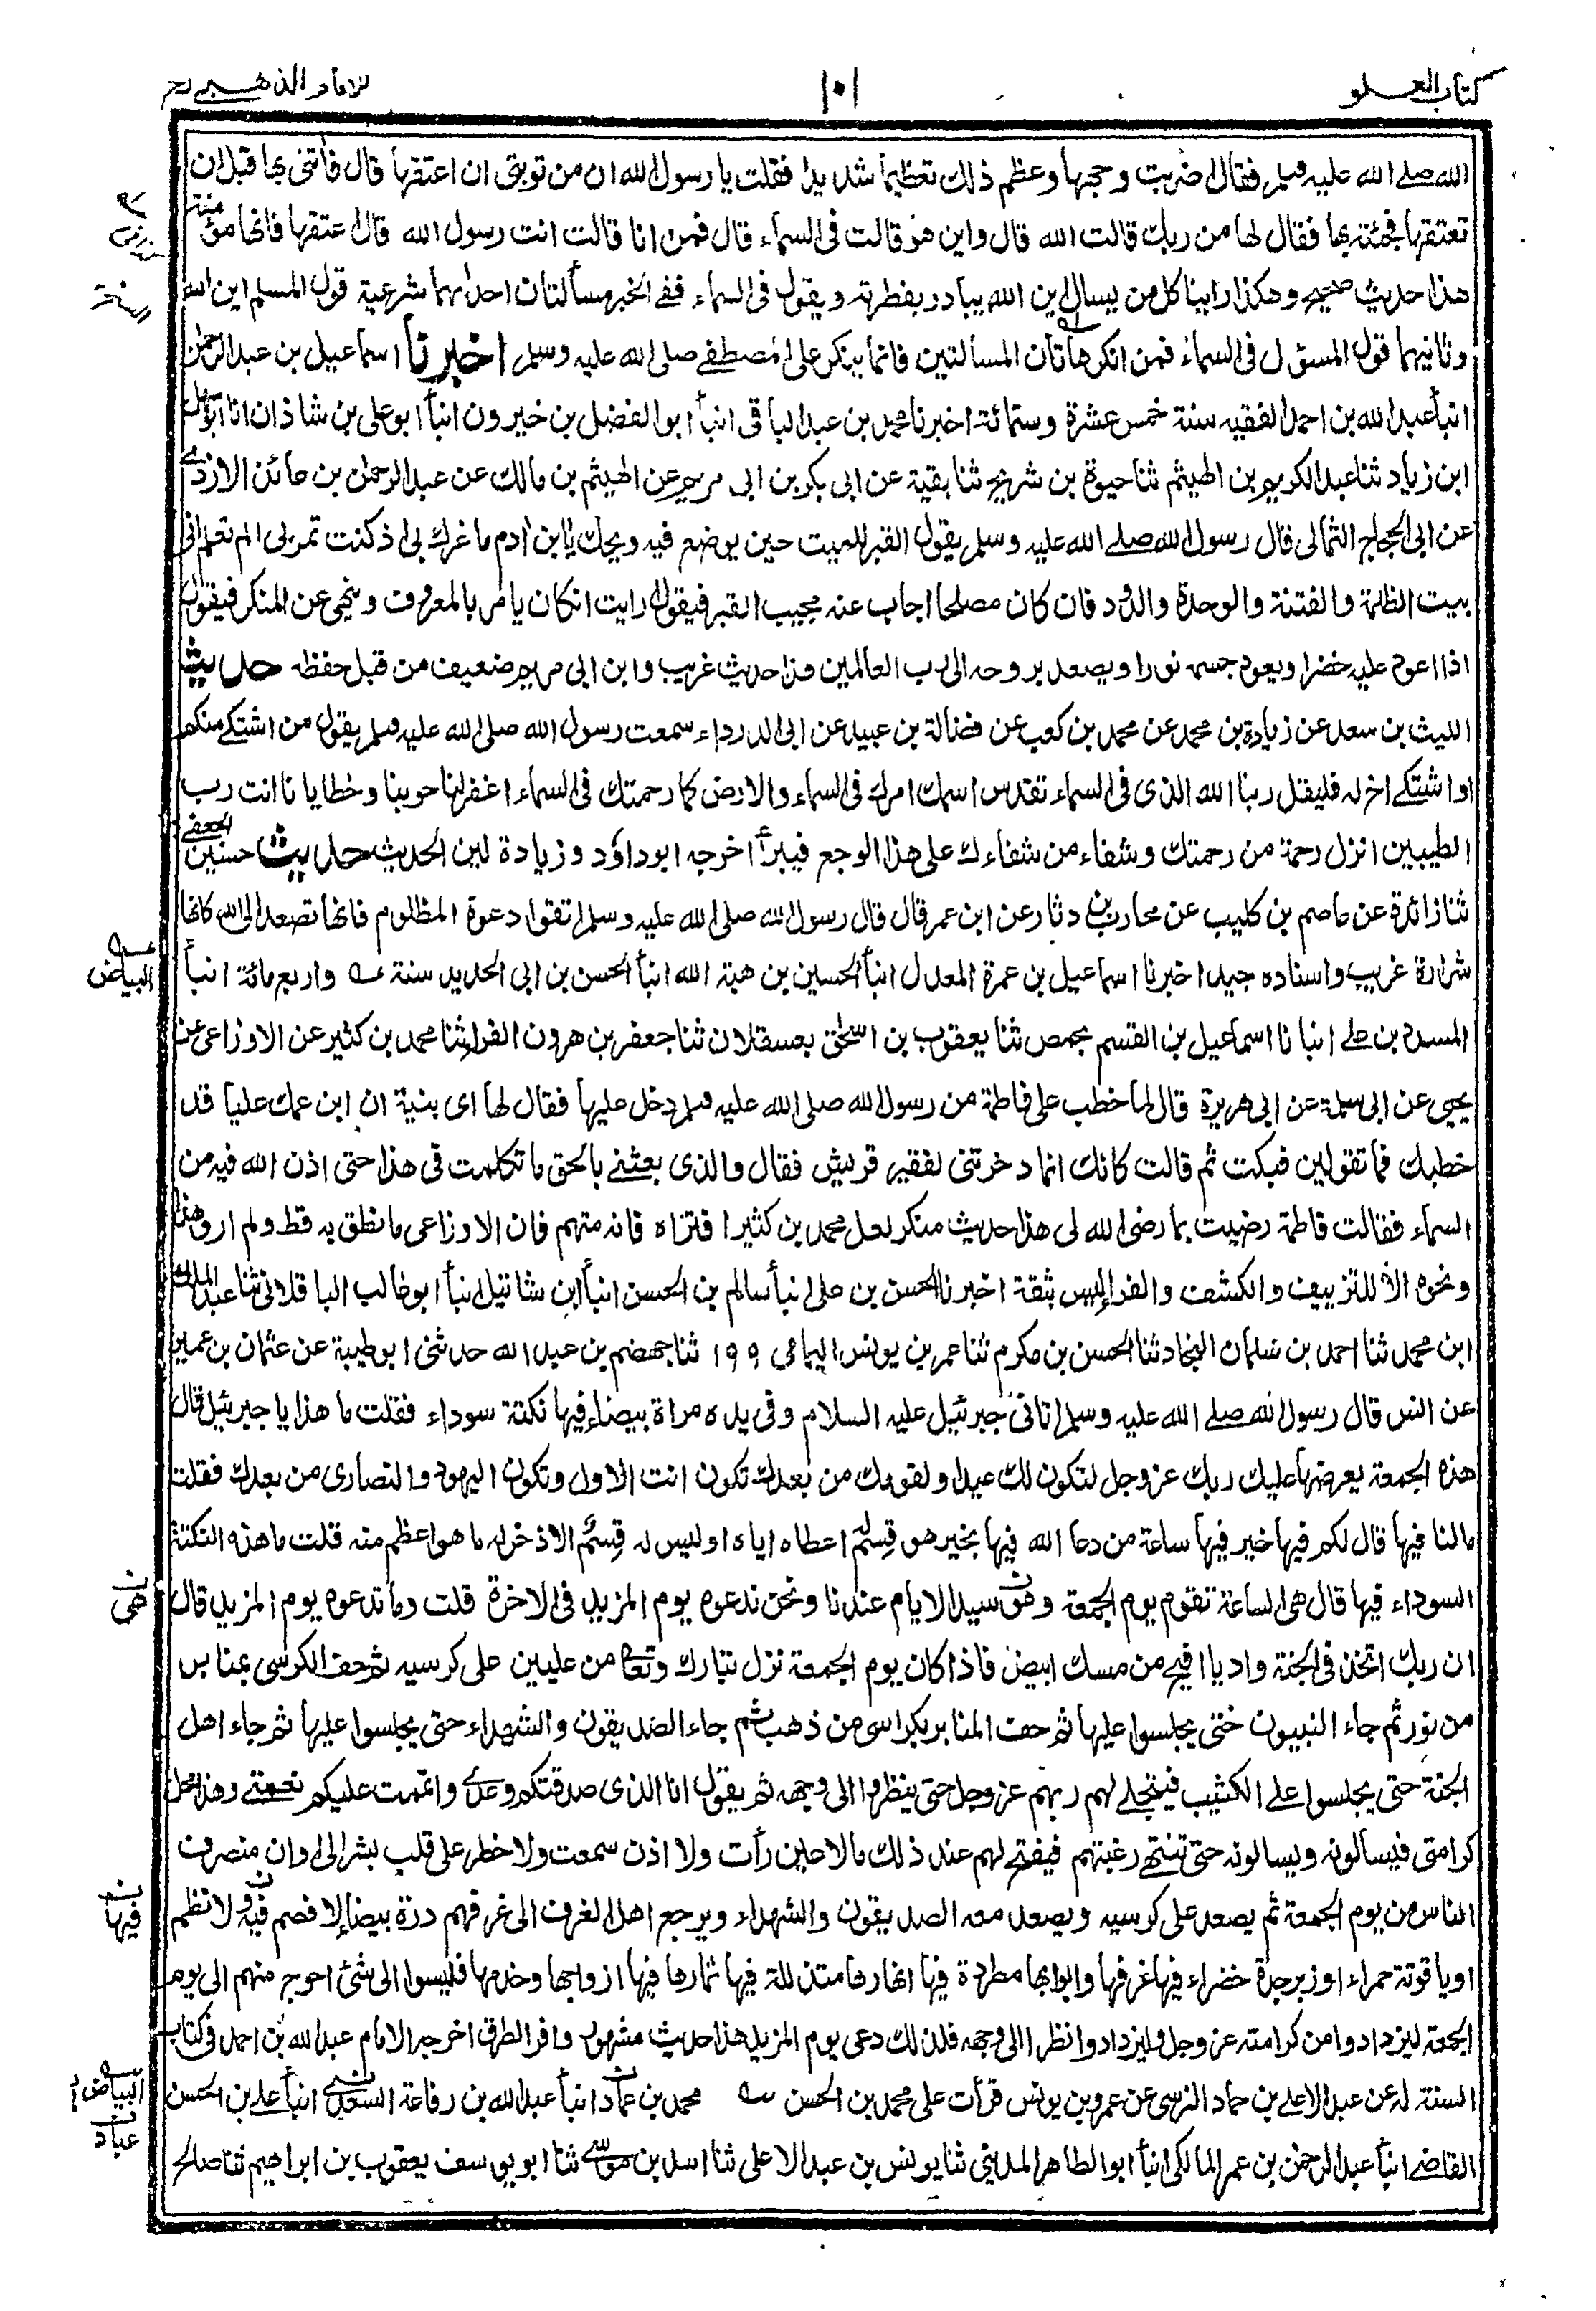 كتاب العلو
١٠١
للامام الذهبي رح
الله صلى الله عليه وسلم فقال ضربت وجهها وعظم ذلك تعظيما شديدا فقلت يا رسول الله ان من توبتى ان اعتقها قال فأتنى بها قبل ان
تعتقها فجئته بها فقال لها من ربك قالت الله قال واين هو قالت فى السماء قال فمن انا قالت انت رسول الله قال اعتقها فانها مؤمنة
هذا حديث صحيح وهكذا راينا كل من يسال اين الله يبادر بفطرته ويقول فى السماء ففى الخبر مسألتان احداهما شرعية قول المسلم اين الله
وثانيهما قول المسؤل فى السماء فمن انكر هاتان المسألتين فانما ينكر على المصطفى صلى الله عليه وسلم اخبرنا اسماعيل بن عبد الرحمن
انبأ عبد الله بن احمد الفقيه سنة خمس عشرة وستمائة اخبرنا محمد بن عبد الباقى انبأ ابو الفضل بن خيرون انبأ ابو على بن شاذان انا ابو سهل
ابن زياد ثنا عبد الكريم بن الهيثم ثنا حيوة بن شريح ثنا بقية عن ابى بكر بن ابى مريم عن الهيثم بن مالك عن عبد الرحمن بن عائذ الازدى
عن ابى الحجاج الثمالى قال رسول الله صلى الله عليه وسلم يقول القبر للميت حين يوضع فيه ويحك يا ابن ادم ما غرك بى اذ كنت تمر بى الم تعلم انى
بيت الظلمة والفتنة والوحدة والدود فان كان مصلحا اجاب عنه مجيب القبر فيقول ارايت ان كان يامر بالمعروف وينهى عن المنكر فيقول
اذا اعود عليه خضرا ويعود جسمه نورا ويصعد بروحه الى رب العالمين هذا حديث غريب وابن ابى مريم ضعيف من قبل حفظه حديث
الليث بن سعد عن زيادة بن محمد عن محمد بن كعب عن فضالة بن عبيد عن ابى الدرداء سمعت رسول الله صلى الله عليه وسلم يقول من اشتكى منكم
او اشتكى اخ له فليقل ربنا الله الذى فى السماء تقدس اسمك امرك فى السماء والارض كما رحمتك فى السماء اغفر لنا حوبنا وخطايانا انت رب
الطيبين انزل رحمة من رحمتك وشفاء من شفاءك على هذا الوجع فيبرأ اخرجه ابو داؤد وزيادة لين الحديث حديث حسين الجعفى
ثنا زائدة عن عاصم بن كليب عن محارب بن دثار عن ابن عمر قال قال رسول الله صلى الله عليه وسلم اتقوا دعوة المظلوم فانها تصعد الى الله كانها
شرارة غريب واسناده جيد اخبرنا اسماعيل بن عمرة المعدل انبأ الحسين بن هبة الله انبأ الحسن بن ابى الحديد سنة عـه واربع مائة انبأ
المسدد بن على انبانا اسماعيل بن القسم بحمص ثنا يعقوب بن اسحق بعسقلان ثنا جعفر بن هرون الفرا ثنا محمد بن كثير عن الاوزاعى عن
يحيى عن ابى سلمة عن ابى هريرة قال لما خطب على فاطمة من رسول الله صلى الله عليه وسلم دخل عليها فقال لها اى بنية ان ابن عمك عليا قد
خطبك فما تقولين فبكت ثم قالت كانك انما دخرتنى لفقير قريش فقال والذى بعثنى بالحق ما تكلمت فى هذا حتى اذن الله فيه من
السماء فقالت فاطمة رضيت بما رضى الله لى هذا حديث منكر لعل محمد بن كثير افتراه فانه متهم فان الاوزاعى ما نطق به قط ولم ارو هذا
ونحوه الا للتزييف والكشف والفرا ليس بثقة اخبرنا الحسن بن على انبأ سالم بن الحسن انبأ ابن شاتيل انبأ ابو غالب الباقلانى ثنا عبد الملك
ابن محمد ثنا احمد بن سلمان النجاد ثنا الحسن بن مكرم ثنا عمر بن يونس اليمامى ١٩٩ ثنا جهضم بن عبد الله حدثنى ابو طيبة عن عثمان بن عمير
عن انس قال رسول الله صلى الله عليه وسلم اتانى جبرئيل عليه السلام وفى يده مراة بيضاء فيها نكتة سوداء فقلت ما هذا يا جبرئيل قال
هذه الجمعة يعرضها عليك ربك عز وجل لتكون لك عيدا ولقومك من بعدك تكون انت الاول وتكون اليهود والنصارى من بعدك فقلت
مالنا فيها قال لكم فيها خير فيها ساعة من دعا الله فيها بخير هو قسم له اعطاه اياه او ليس له قسم الا ذخر له ما هو اعظم منه قلت ما هذه النكتة
السوداء فيها قال هى الساعة تقوم يوم الجمعة وهو سيد الايام عندنا ونحن ندعوه يوم المزيد فى الاخرة قلت وما تدعوه يوم المزيد قال
ان ربك اتخذ فى الجنة واديا افيح من مسك ابيض فاذا كان يوم الجمعة نزل تبارك وتعالى من عليين على كرسيه ثم حف الكرسى بمنابر
من نور ثم جاء النبيون حتى يجلسوا عليها ثم حفت المنابر بكراسى من ذهب ثم جاء الصديقون والشهداء حتى يجلسوا عليها ثم جاء اهل
الجنة حتى يجلسوا على الكثيب فيتجلى لهم ربهم عز وجل حتى ينظروا الى وجهه ثم يقول انا الذى صدقتكم وعدى واتممت عليكم نعمتى وهذا محل
كرامتى فيسألونه ويسالونه حتى تنتهى رغبتهم فيفتح لهم عند ذلك مالا عين رأت ولا اذن سمعت ولا خطر على قلب بشر الى اوان منصرف
الناس من يوم الجمعة ثم يصعد على كرسيه ويصعد معه الصديقون والشهداء ويرجع اهل الغرف الى غرفهم درة بيضا لا فصم فيه ولا نظم
او ياقوتة حمراء او زبرجدة خضراء فيها غرفها وابوابها مطردة فيها انهارها متذللة فيها ثمارها فيها ازواجها وخدمها فليسوا الى شئ احوج منهم الى يوم
الجمعة ليزدادوا من كرامته عز وجل وليزدادوا نظرا الى وجهه فلذلك دعى يوم المزيد هذا حديث مشهور وافر الطرق اخرجه الامام عبد الله بن احمد فى كتاب
السنة له عن عبد الاعلى بن حماد النرسى عن عمرو بن يونس قرأت على محمد بن الحسن سه محمد بن عماد انبأ عبد الله بن رفاعة السعدى انبأ على بن الحسن
القاضى انبأ عبد الرحمن بن عمر المالكى انبأ ابو الطاهر المدينى ثنا يونس بن عبد الاعلى ثنا اسد بن موسى ثنا ابو يوسف يعقوب بن ابراهيم ثنا صالح
عـه
البياض
هى
فيها
البياض
عباد